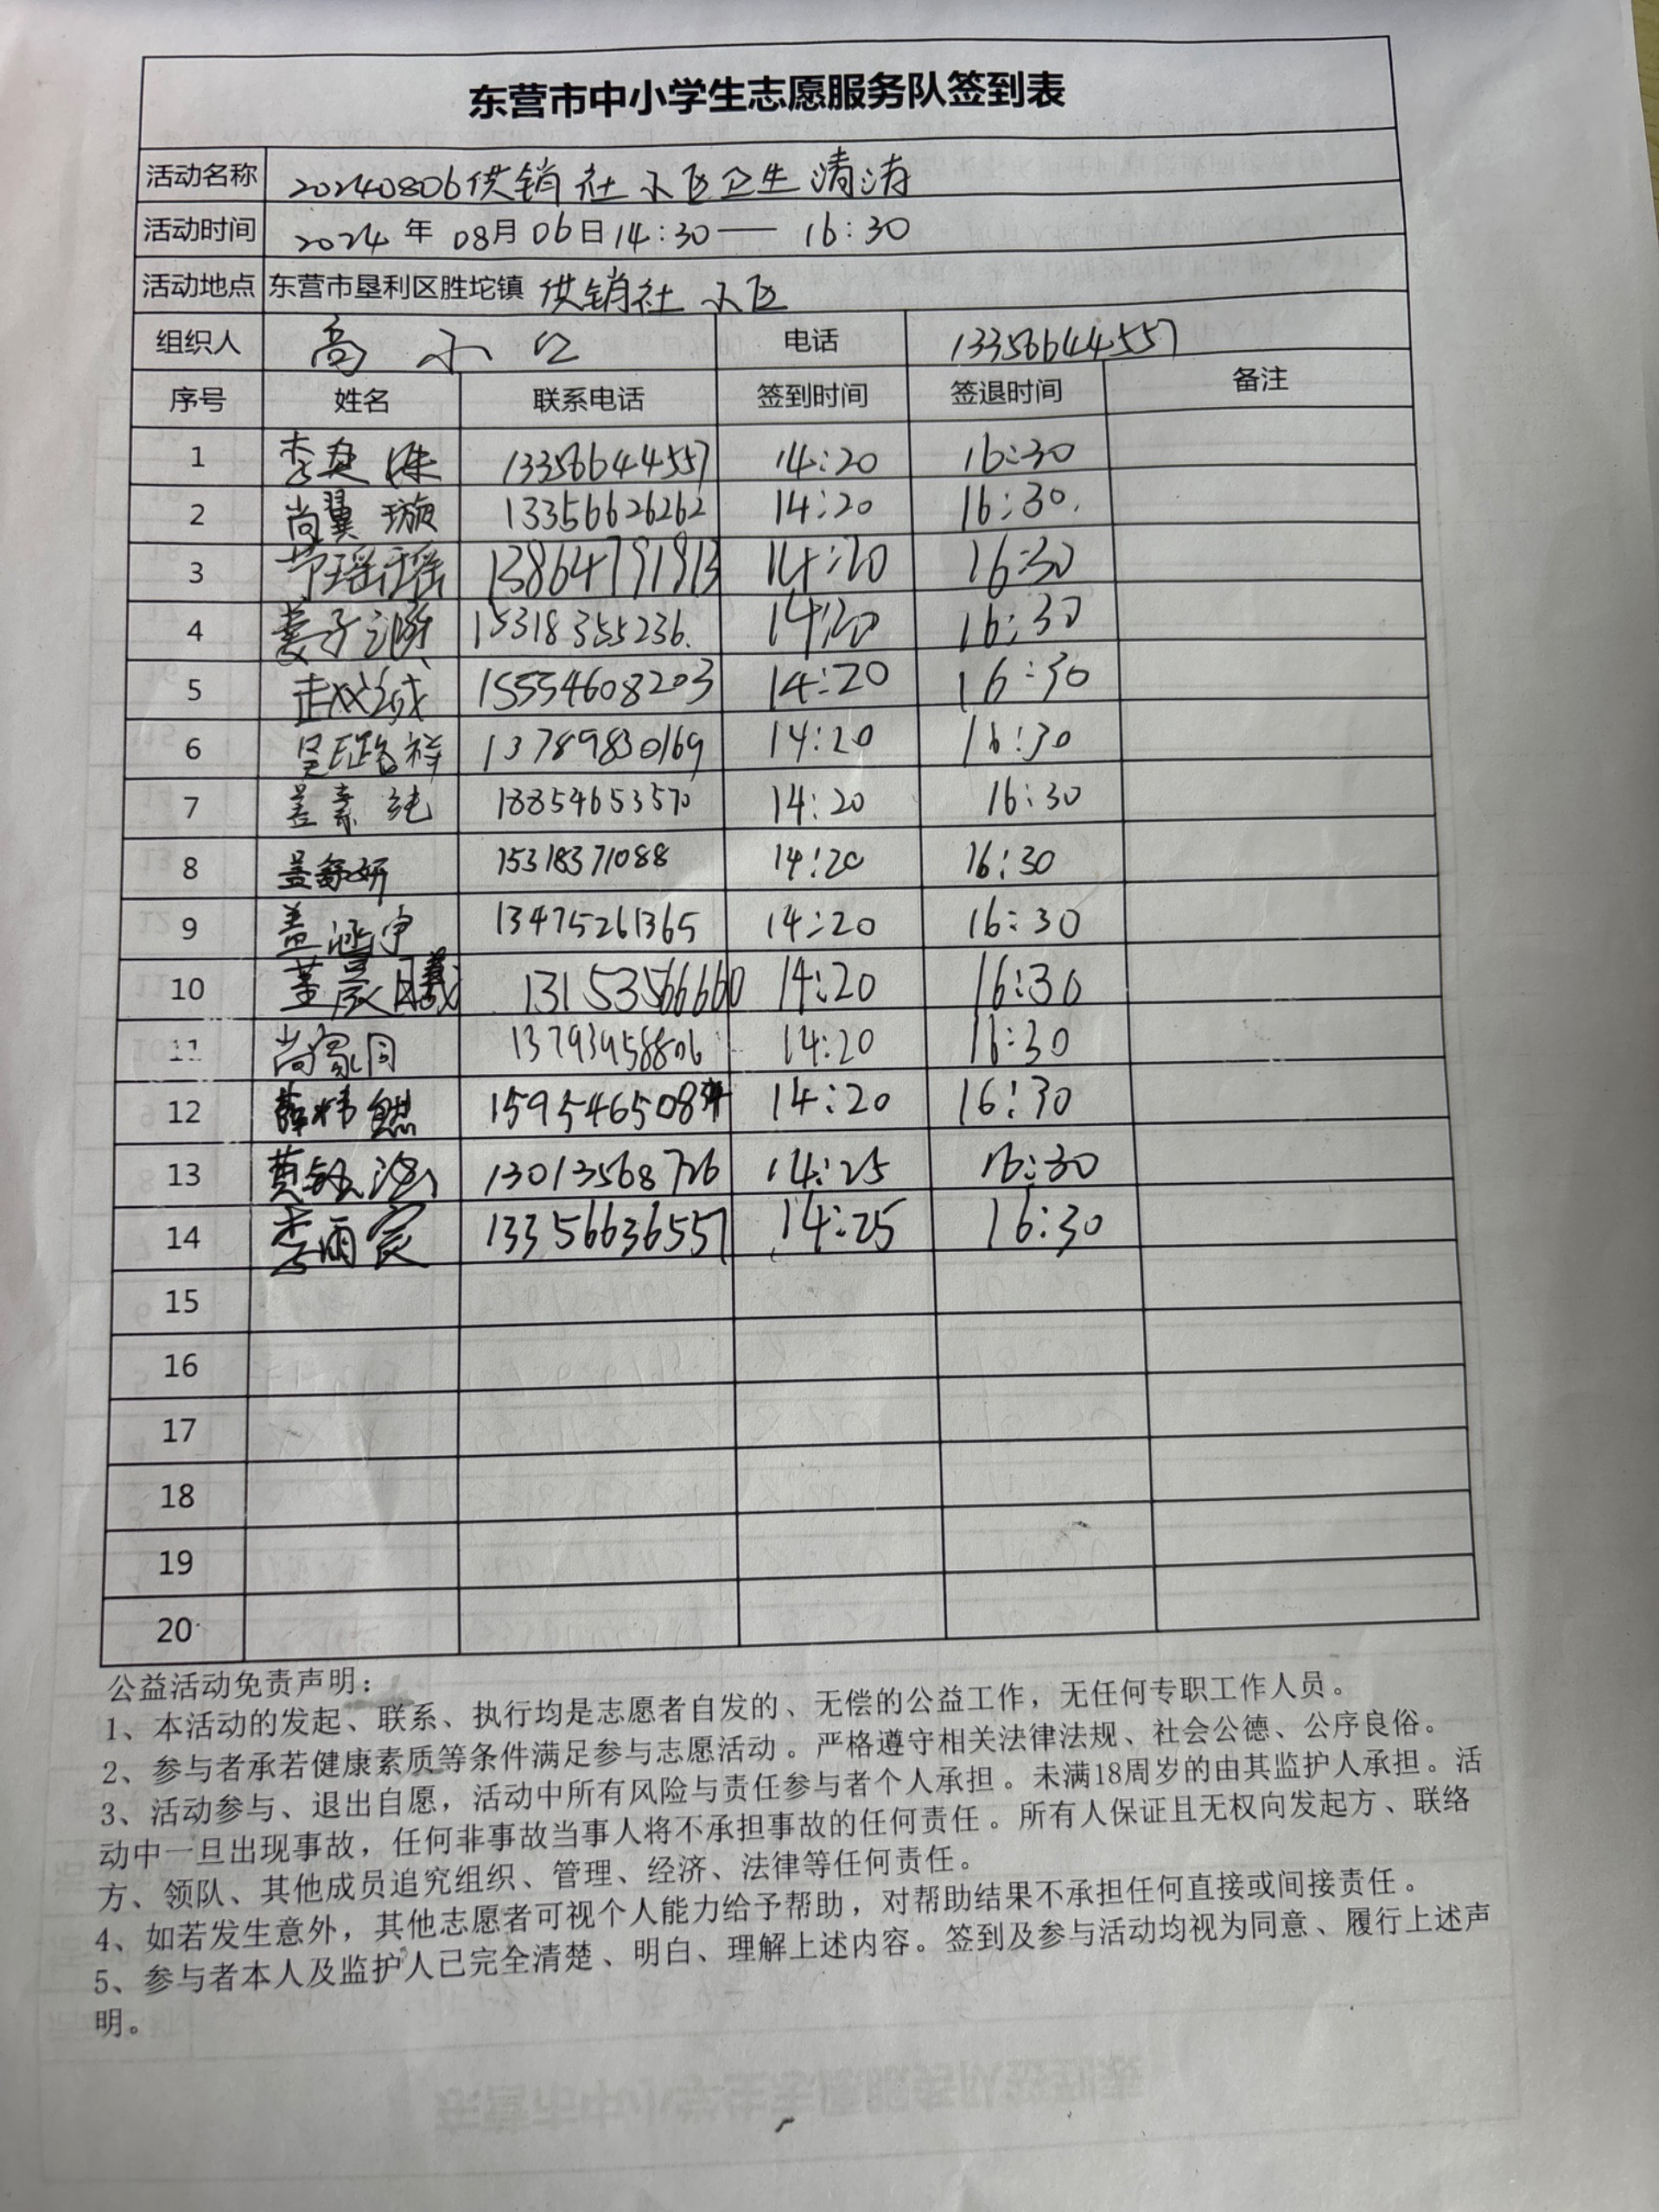 东营市中小学生志愿服务队签到表
活动名称 20240806供销社小区卫生清洁
活动时间 2024年08月06日14:30—16:30
活动地点 东营市垦利区胜坨镇 供销社小区
组织人 高小 电话 13356644557
序号 姓名 联系电话 签到时间 签退时间 备注
1 李 姝 13356644557 14:20 16:30
2 尚翼璇 13356626262 14:20 16:30
3 瑶瑶 13864791913 14:20 16:30
4 姜子涵 15318355236 14:20 16:30
5 15554608203 14:20 16:30
6 吴 祥 13789830169 14:20 16:30
7 盖素纯 18854653570 14:20 16:30
8 盖舒妍 15318371088 14:20 16:30
9 盖涵宇 13475261365 14:20 16:30
10 董晨曦 13153566660 14:20 16:30
11 尚家同 13793958806 14:20 16:30
12 薛炜然 159546508 14:20 16:30
13 黄 13013568726 14:25 16:30
14 李雨宸 13356636557 14:25 16:30
15
16
17
18
19
20
公益活动免责声明：
1、本活动的发起、联系、执行均是志愿者自发的、无偿的公益工作，无任何专职工作人员。
2、参与者承若健康素质等条件满足参与志愿活动。严格遵守相关法律法规、社会公德、公序良俗。
3、活动参与、退出自愿，活动中所有风险与责任参与者个人承担。未满18周岁的由其监护人承担。活
动中一旦出现事故，任何非事故当事人将不承担事故的任何责任。所有人保证且无权向发起方、联络
方、领队、其他成员追究组织、管理、经济、法律等任何责任。
4、如若发生意外，其他志愿者可视个人能力给予帮助，对帮助结果不承担任何直接或间接责任。
5、参与者本人及监护人已完全清楚、明白、理解上述内容。签到及参与活动均视为同意、履行上述声
明。